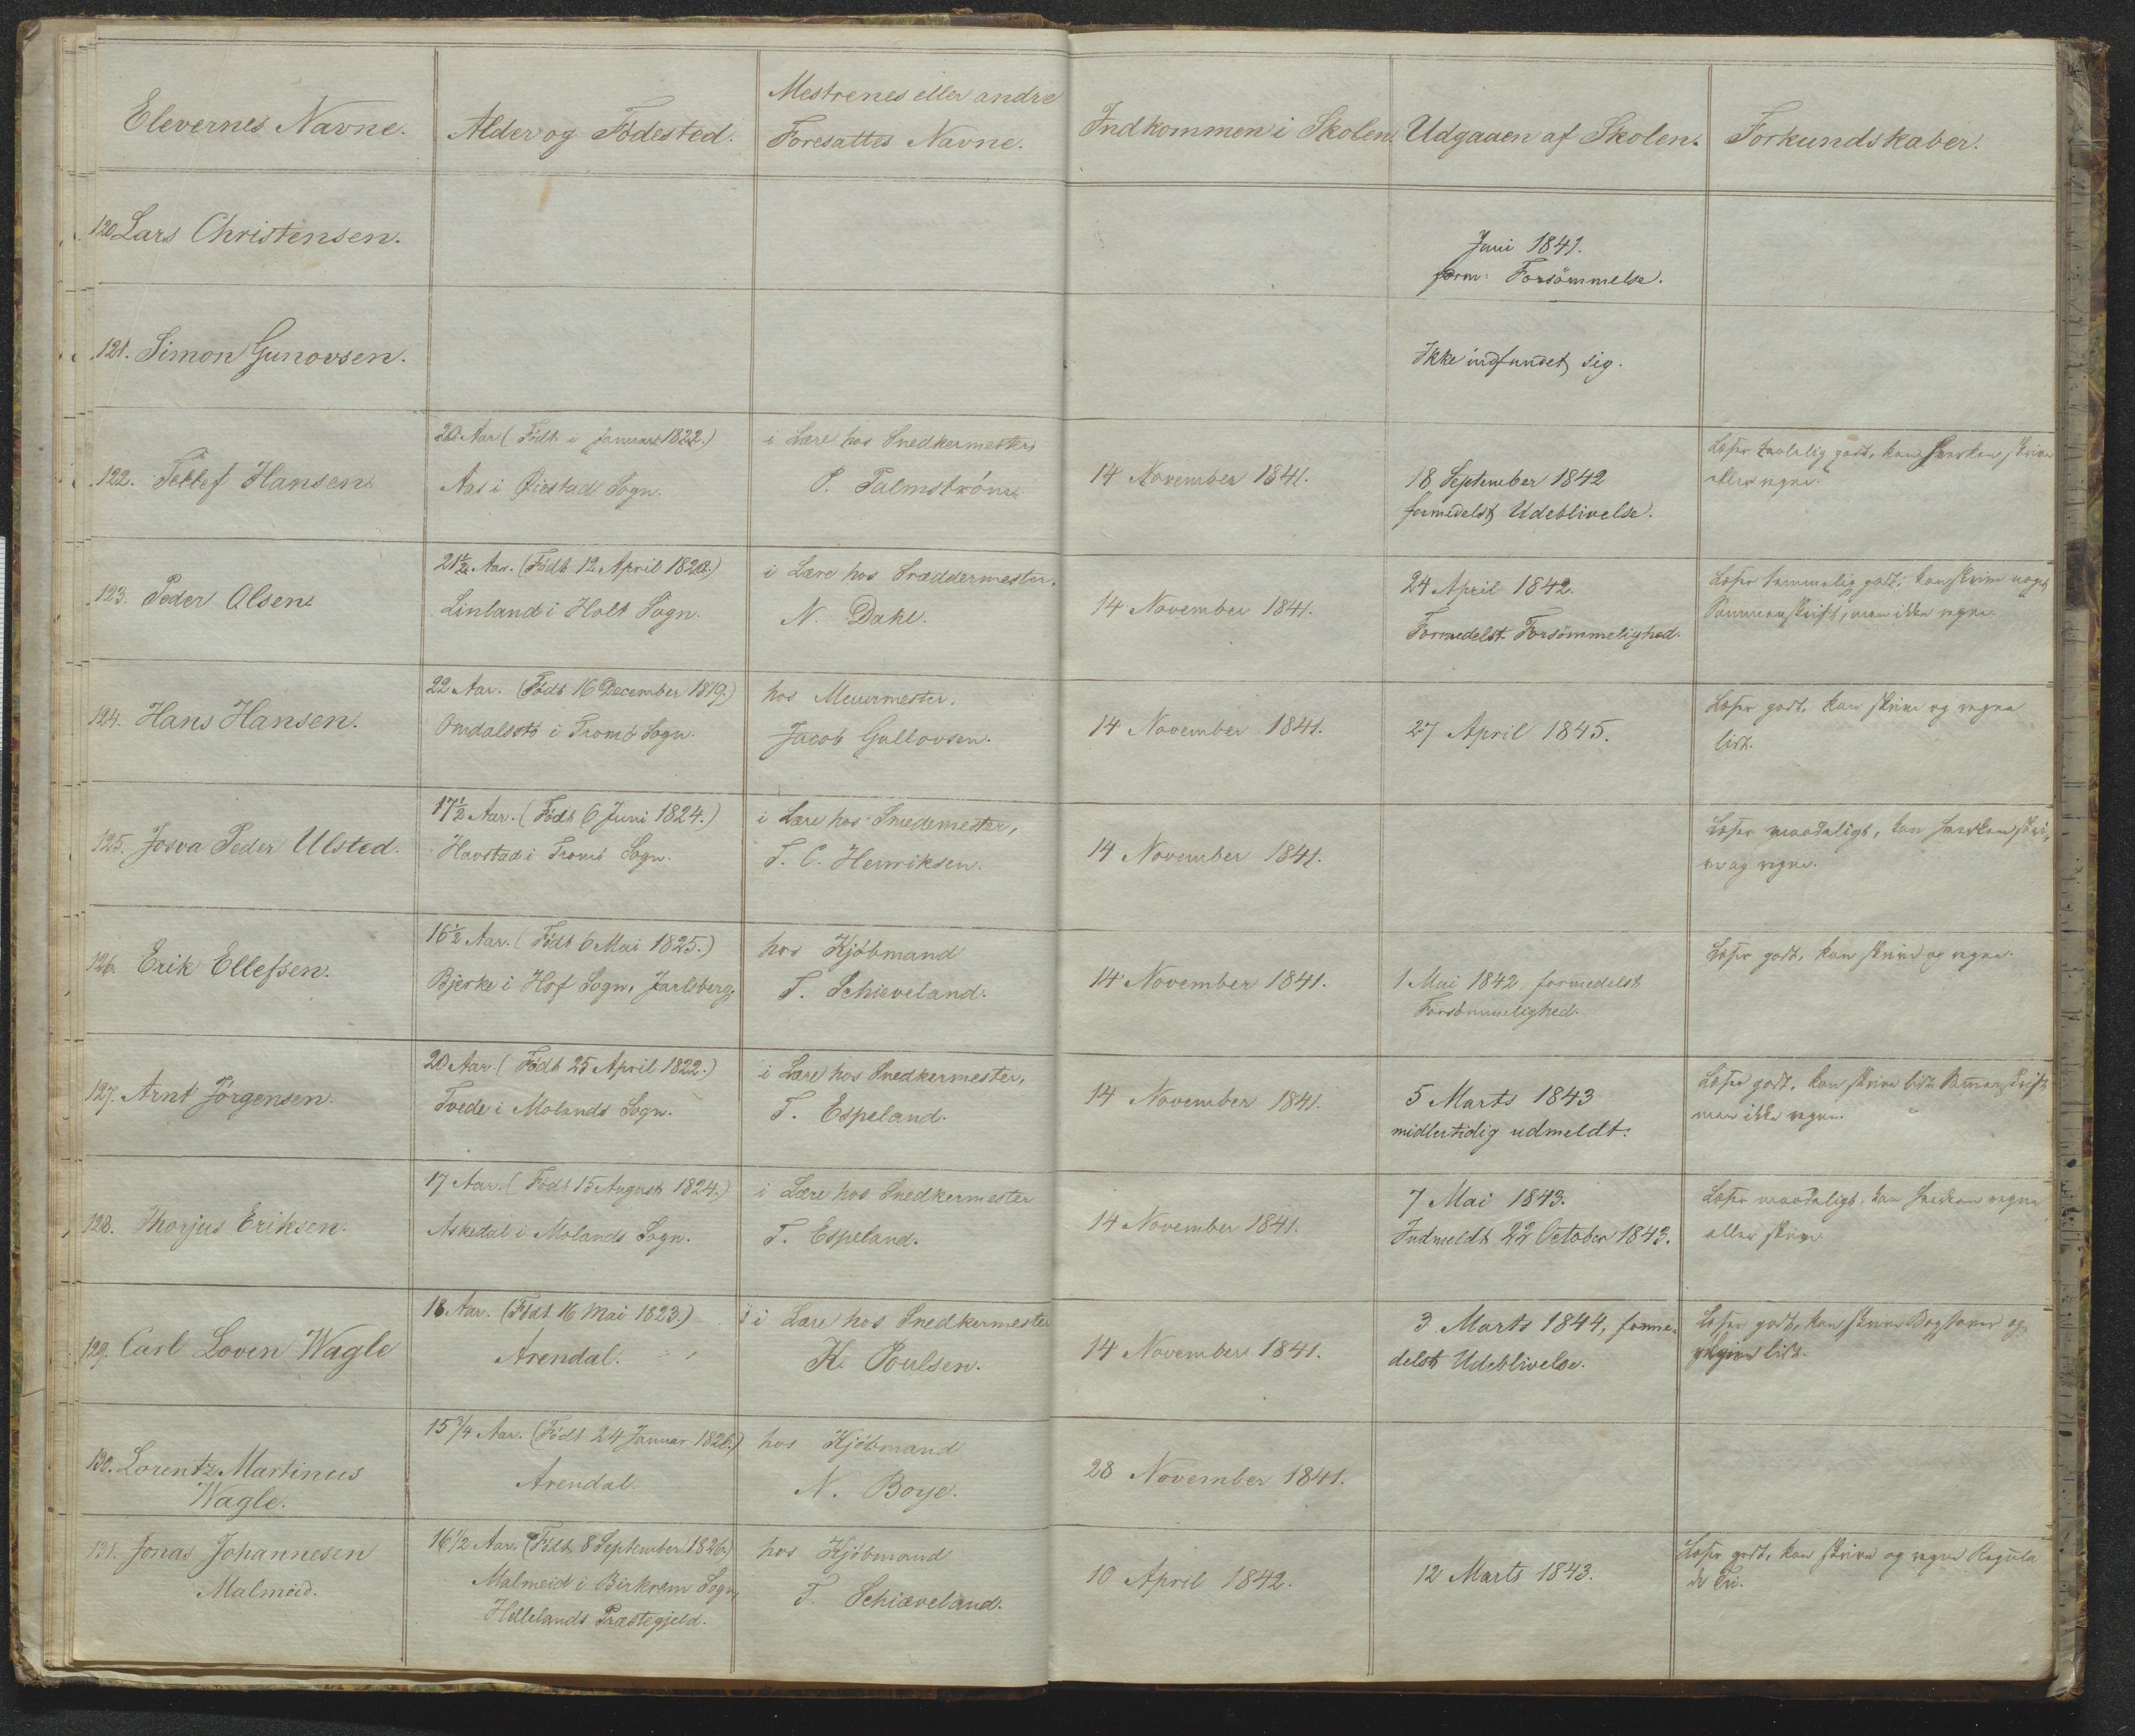 Elevernes Navne.
Alder og Födested.
Mestrenes eller andre
Foresattes Navne.
Indkommen i Skolen.
Udgaaen af Skolen.
Forkundskaber.
120 Lars Christensen.
Juni 1841.
form: Forsömmelse.
121. Simon Gunovsen.
Ikke indfundet sig.
122. Tellef Hansen.
20 Aar (Født i Januar 1822.)
Aas i Øiestad Sogn.
i Lære hos Snedkermester
P. Palmström.
14 November 1841.
18 September 1842
formedelst Udeblivelse.
Læser taalelig godt, kan hverken skrive
eller regne.
123. Peder Olsen
21½ Aar. (Født 12 April 1820.)
Linland i Holt Sogn.
i Lære hos Skræddermester,
N. Dahl.
14 November 1841.
24 April 1842.
Formedelst Forsömmelighed.
Læser temmelig godt, kan skrive noget
Sammenskrift, men ikke regne.
124. Hans Hansen.
22 Aar. (Født 16 December 1819.)
Omdalsstö i Tromö Sogn.
hos Muurmester.
Jacob Gullovsen.
14 November 1841.
27 April 1845.
Læser godt, kan skrive og regne
lidt.
125. Josva Peder Ulsted.
17½ Aar. (Født 6 Juni 1824.)
Havstad i Tromö Sogn.
i Lære hos Smedemester,
T. C. Henriksen.
14 November 1841.
Læser maadeligt, kan hverken skri-
ve og regne.
126. Erik Ellefsen.
16½ Aar. (Født 6 Mai 1825.)
Bjerke i Hof Sogn, Jarlsberg,
hos Kjöbmand
T. Schieveland.
14 November 1841.
1 Mai 1842 formedelst
Forsömmelighed.
Læser godt, kan skrive og regne.
127. Arnt Jörgensen.
20 Aar. (Født 25 April 1822.)
Tvede i Molands Sogn.
i Lære hos Snedkermester,
T. Espeland.
14 November 1841.
5 Marts 1843
midlertidig udmeldt.
Læser godt, kan skrive lidt Sammenskrift
men ikke regne.
128. Thorjus Eriksen.
17 Aar. (Født 15 August 1824.)
Askedal i Molands Sogn.
i Lære hos Snedkermester
T. Espeland.
14 November 1841.
7 Mai 1843.
Indmeldt 22 October 1843.
Læser maadeligt, kan hverken regne
eller skrive.
129. Carl Loven Wagle
18 Aar. (Født 16 Mai 1823.)
Arendal.
i Lære hos Snedkermester
K. Poulsen.
14 November 1841.
3 Marts 1844, forme-
delst Udeblivelse.
Læser godt, kan skrive Bogstaver og
regne lidt.
130. Lorentz Martinus
Wagle.
15¾ Aar. (Født 24 Januar 1826.)
Arendal.
hos Kjöbmand
N. Boye.
28 November 1841.
131. Jonas Johannesen
Malmeid.
16½ Aar. (Født 8 September 1826.)
Malmeid i Birkrem Sogn,
Hellelands Præstegjeld.
hos Kjöbmand
T. Schiæveland.
10 April 1842.
12 Marts 1843.
Læser godt, kan skrive og regne Regula
de Tri.